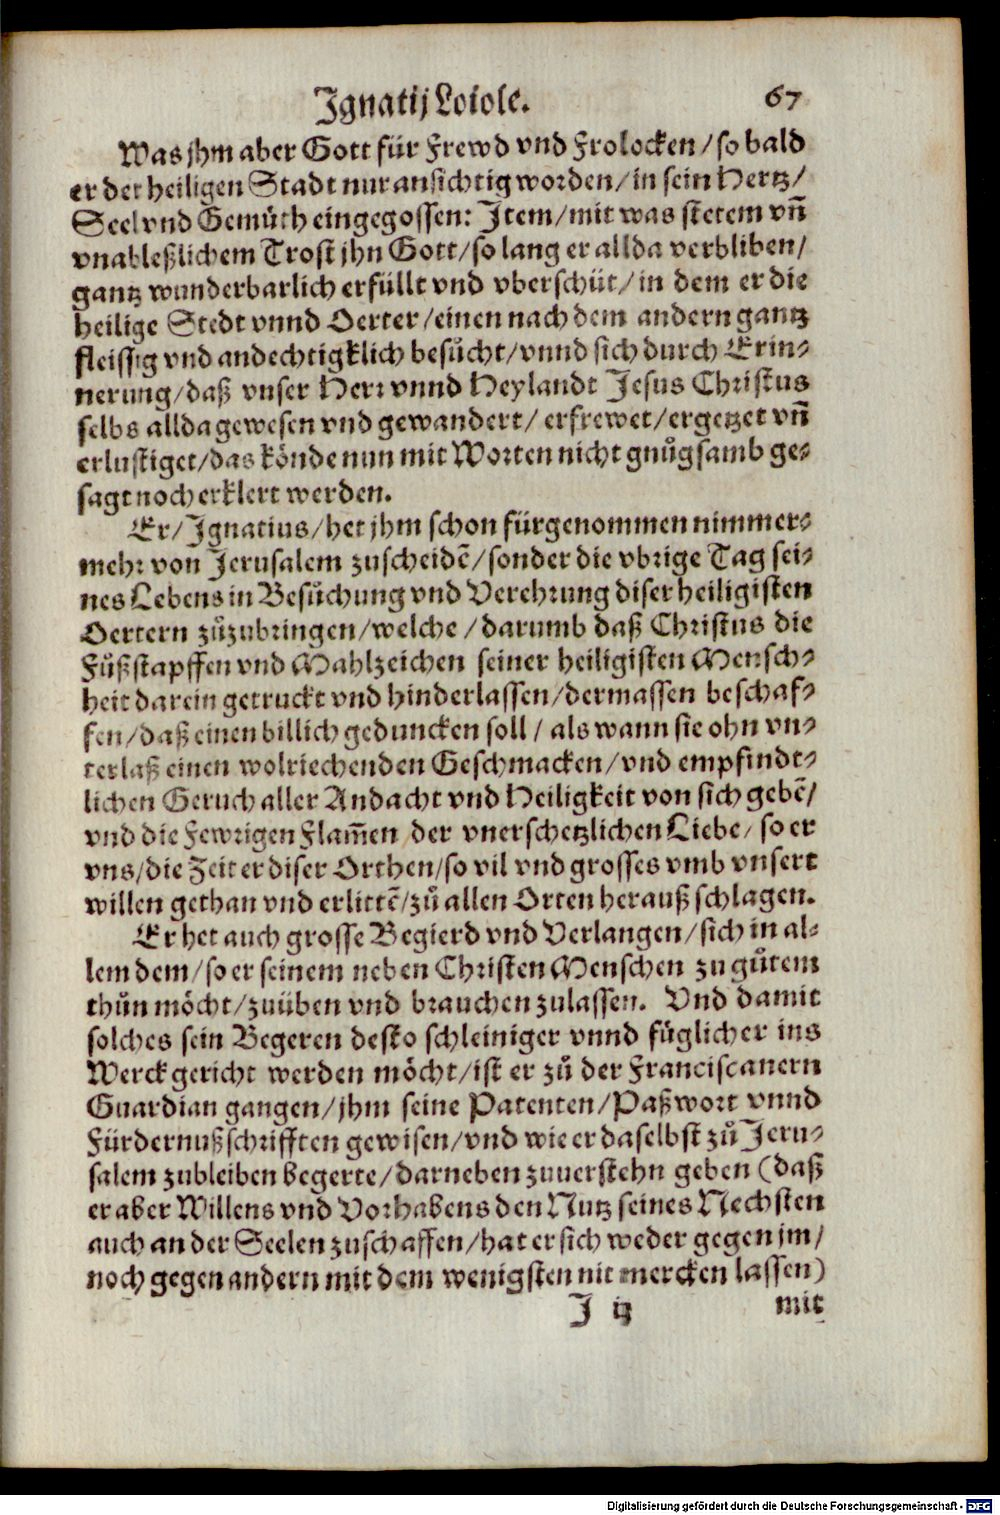 Ignatij Loiole. 67
Was jhm aber Gott für Frewd vnd Frolocken / so bald
er der heiligen Stadt nur ansichtig worden / in sein Hertz /
Seel vnd Gemüth eingegossen: Item / mit was stetem vn̄
vnableßlichem Trost jhn Gott / so lang er allda verbliben /
gantz wunderbarlich erfüllt vnd vberschüt / in dem er die
heilige Stedt vnnd Oerter / einen nach dem andern gantz
fleissig vnd andechtigklich besůcht / vnnd sich durch Erin⸗
nerung / daß vnser Herr vnnd Heylandt Jesus Christus
selbs allda gewesen vnd gewandert / erfrewet / ergetzet vn̄
erlustiget / das könde nun mit Worten nicht gnůgsamb ge⸗
sagt noch erklert werden.
Er / Ignatius / het jhm schon fürgenommen nimmer⸗
mehr von Jerusalem zuscheidē / sonder die vbrige Tag sei⸗
nes Lebens in Besůchung vnd Verehrung diser heiligisten
Oertern zůzubringen / welche / darumb daß Christus die
Fůßstapffen vnd Mahlzeichen seiner heiligisten Mensch⸗
heit darein getruckt vnd hinderlassen / dermassen beschaf⸗
fen / daß einen billich geduncken soll / als wann sie ohn vn⸗
terlaß einen wolriechenden Geschmacken / vnd empfindt⸗
lichen Geruch aller Andacht vnd Heiligkeit von sich gebē /
vnd die Fewrigen Flam̄en der vnerschetzlichen Liebe / so er
vns / die Zeit er diser Orthen / so vil vnd grosses vmb vnsert
willen gethan vnd erlittē / zů allen Orten herauß schlagen.
Er het auch grosse Begierd vnd Verlangen / sich in al⸗
lem dem / so er seinem neben Christen Menschen zu gůtem
thůn möcht / zuüben vnd brauchen zulassen. Vnd damit
solches sein Begeren desto schleiniger vnnd füglicher ins
Werck gericht werden möcht / ist er zů der Franciscanern
Guardian gangen / jhm seine Patenten / Paßwort vnnd
Fürdernußschrifften gewisen / vnd wie er daselbst zů Jeru⸗
salem zubleiben begerte / darneben zuuerstehn geben (daß
er aber Willens vnd Vorhabens den Nutz seines Nechsten
auch an der Seelen zuschaffen / hat er sich weder gegen jm /
noch gegen andern mit dem wenigsten nit mercken lassen)
I iij mit
Digitalisierung gefördert durch die Deutsche Forschungsgemeinschaft - DFG